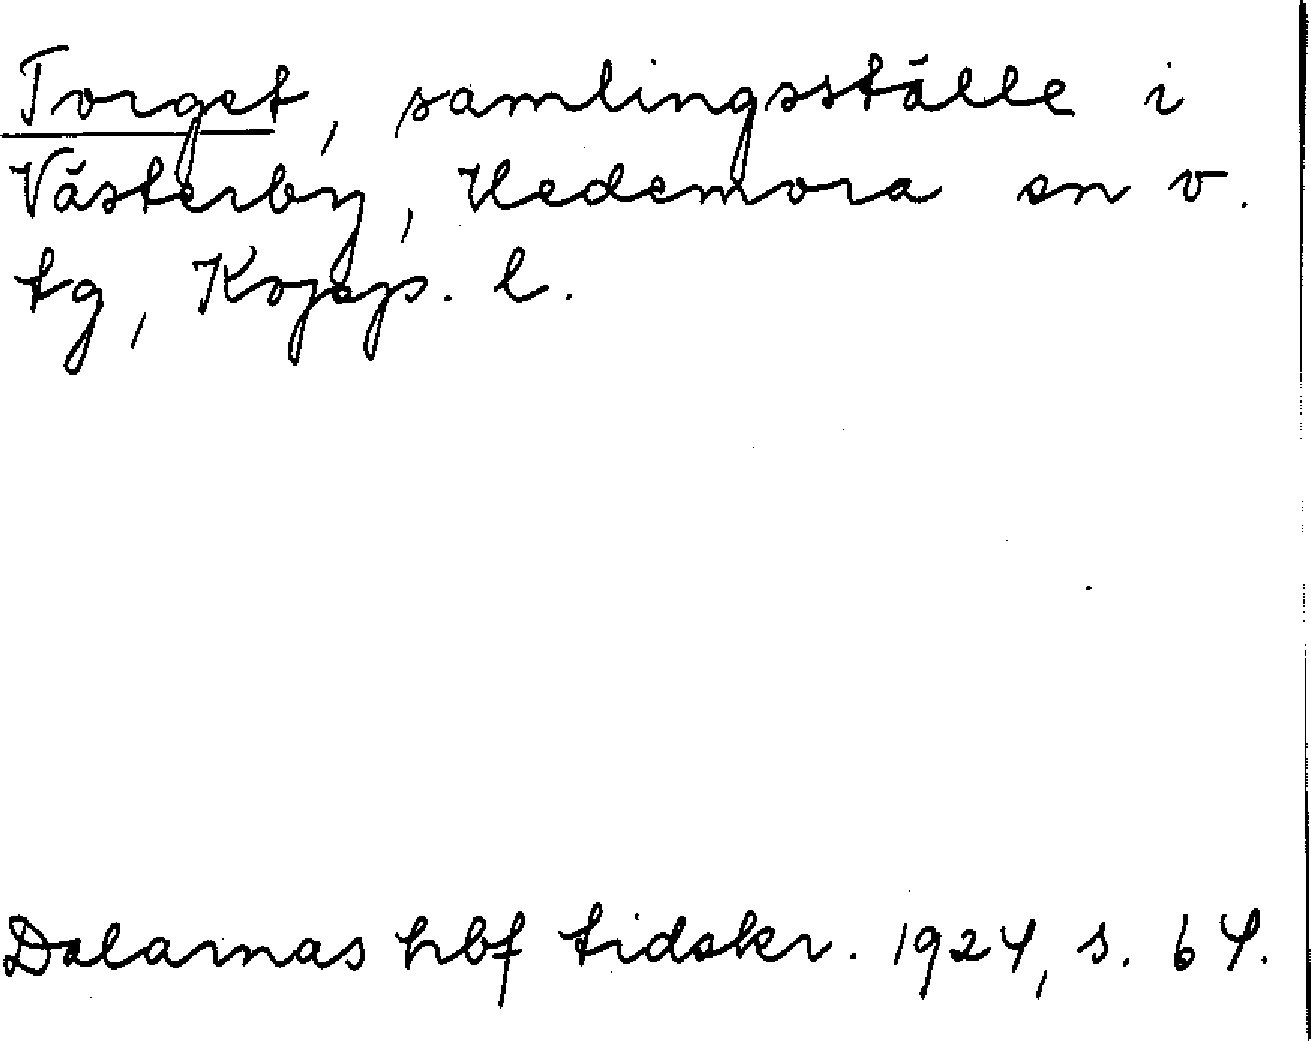 Torget, samlingsställe i
Västerby, Hedemora sn v.
tg, Kopp. l.
Dalarnas hbf tidskr. 1924, s. 64.